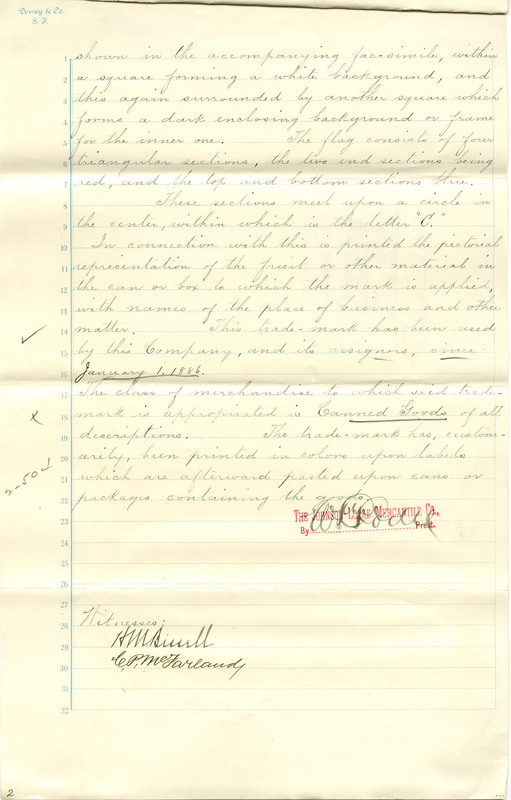 Dewey & Co.
S. F.
1 shown in the accompanying fac-simile, within
2 a square forming a white background, and
3 this again surrounded by another square which
4 forms a dark enclosing background or frame
5 for the inner one. The flag consists of four
6 triangular sections, the two end sections being
7 red, and the top and bottom sections blue.
8 These sections meet upon a circle in
9 the center, within which is the letter "C."
10 In connection with this is printed the pictorial
11 representation of the fruit or other material in
12 the can or box to which the mark is applied,
13 with names of the place of business and other
14 matter. This trade-mark has been used
15 by this Company, and its assignors, since
16 January 1, 1886.
17 The class of merchandise to which said trade-
18 mark is appropriated is Canned Goods of all
19 descriptions. The trade-mark has, custom-
20 arily, been printed in colors upon labels
21 which are afterward pasted upon cans or
22 packages containing the goods.
23 The Johnson-Locke Mercantile Co.,
24 By Prest.
25
26
27
28 Witnesses:
29
30 C. P. McFarland
31
32
2